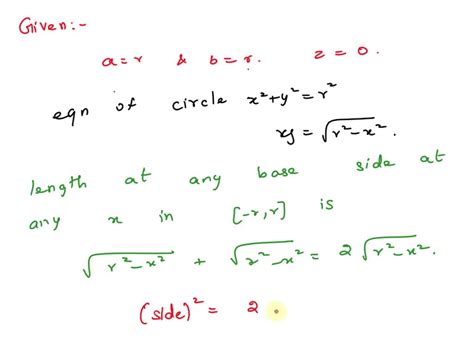 Given:-
a=r & b=r. z=0.
eqn of circle x²+y²=r²
y=√r²-x².
length at any base side at
any x in [-r,r] is
√r²-x² + √r²-x² = 2√r²-x².
(side)² = 2